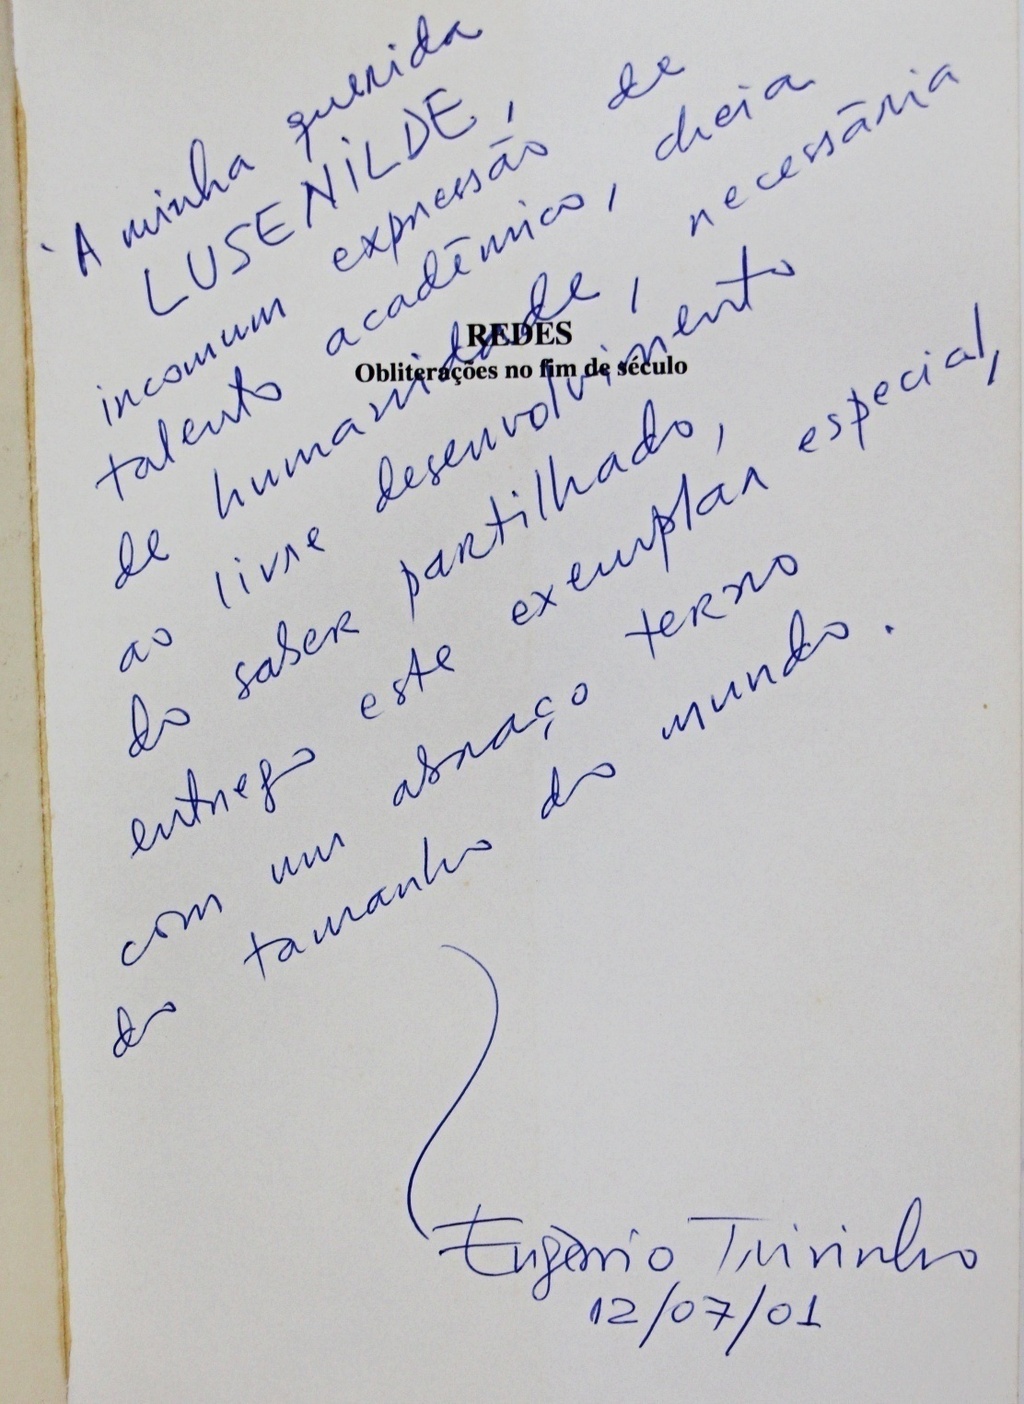 À minha querida
LUSENILDE,
incomum expressão de
talento acadêmico, cheia
de humanidade, necessária
ao livre desenvolvimento
do saber partilhado,
entrego este exemplar especial,
com um abraço terno
do tamanho do mundo.
REDES
Obliterações no fim de século
Eugênio Trivinho
12/07/01